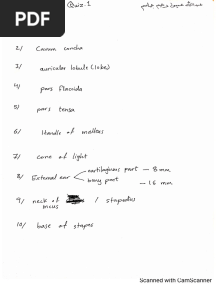 PDF
Quiz.1
2/ Cavum concha
3/ auricular lobule (lobe)
4/ pars flaccida
5/ pars tensa
6/ Handle of malleus
7/ cone of light
8/ External ear cartilaginous part — 8 mm
bony part — 16 mm
9/ neck of / stapedius
incus
10/ base of stapes
Scanned with CamScanner